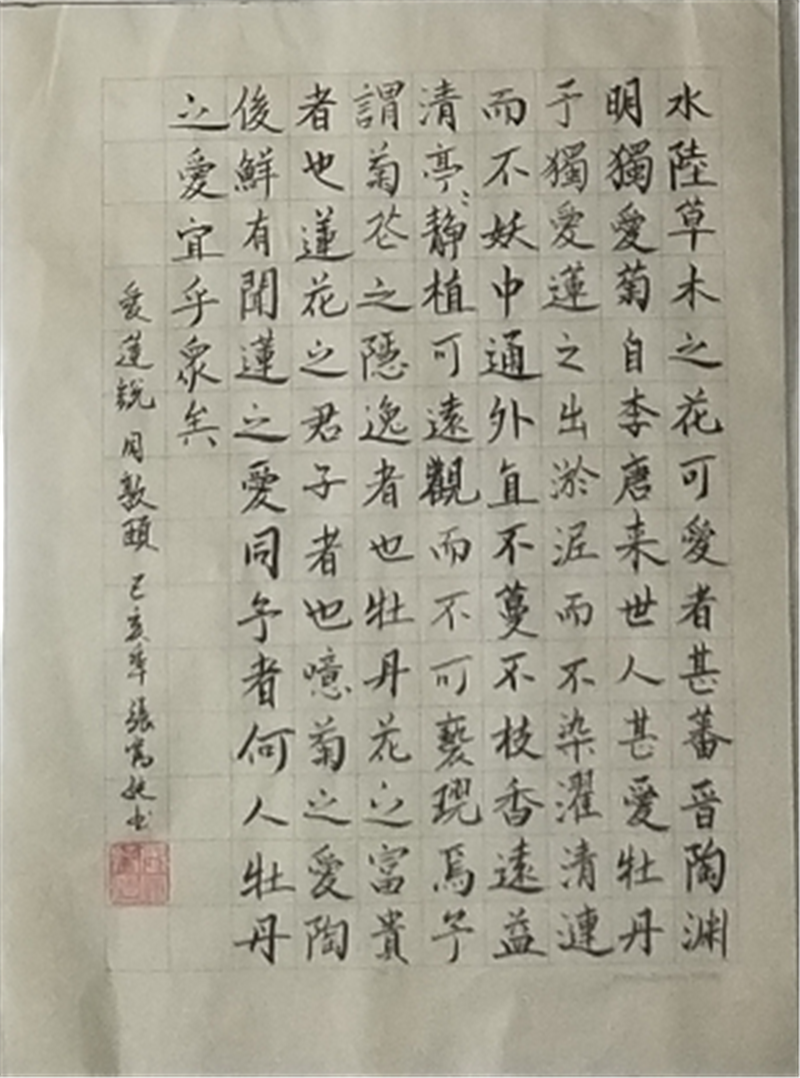 水陸草木之花可愛者甚蕃晋陶渊
明獨愛菊自李唐来世人甚愛牡丹
予獨愛蓮之出淤泥而不染濯清漣
而不妖中通外直不蔓不枝香遠益
清亭〻静植可遠觀而不可褻翫焉予
謂菊花之隱逸者也牡丹花之富貴
者也蓮花之君子者也噫菊之愛陶
後鮮有聞蓮之愛同予者何人牡丹
之愛宜乎衆矣
愛蓮説 周敦頤 己亥年 張 书